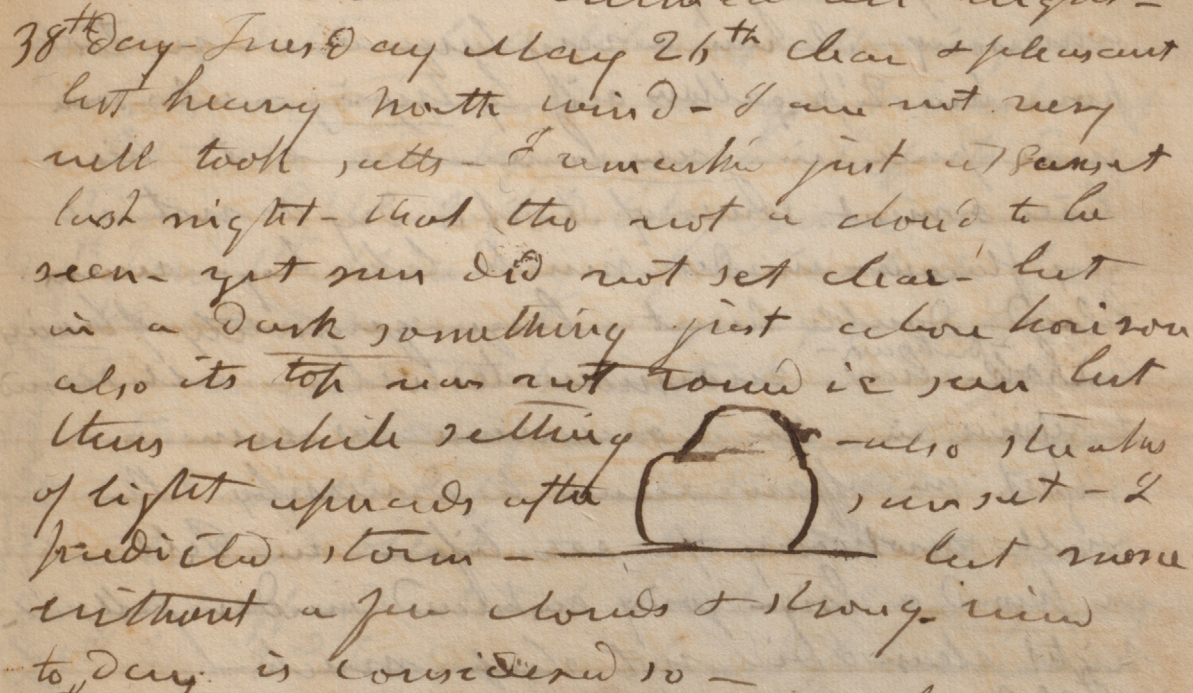 38th day - Tuesday May 26th clear & pleasant
but heavy North wind - I am not very
well took salts - I remarked just at Sunset
last night - that tho not a cloud to be
seen - yet sun did not set clear - but
in a dark something just above horison
also its top was not round ie sun but
thus while setting - also streaks
of light upwards after sunset - I
predicted storm - but none
without a few clouds & strong wind
to day is considered so -